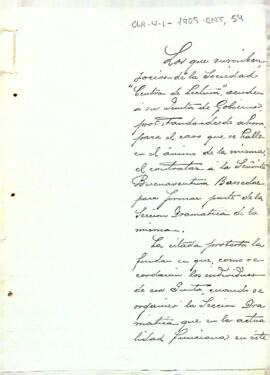 CLR-4-1-1905-ENT, 54
Los que suscriben
socios de la Sociedad
"Centro de Lectura", acuden
á su Junta de Gobierno,
protestando desde ahora
para el caso que se halle
en el ánimo de la misma
el contratar á la Señorita
Buenaventura
para formar parte de la
Sección Dramática de la
misma.
La citada protesta la
fundan en que, como re-
cordarán los individuos
de esa Junta, cuando se
organizó la Sección Dra-
mática que en la actua-
lidad funciona en este